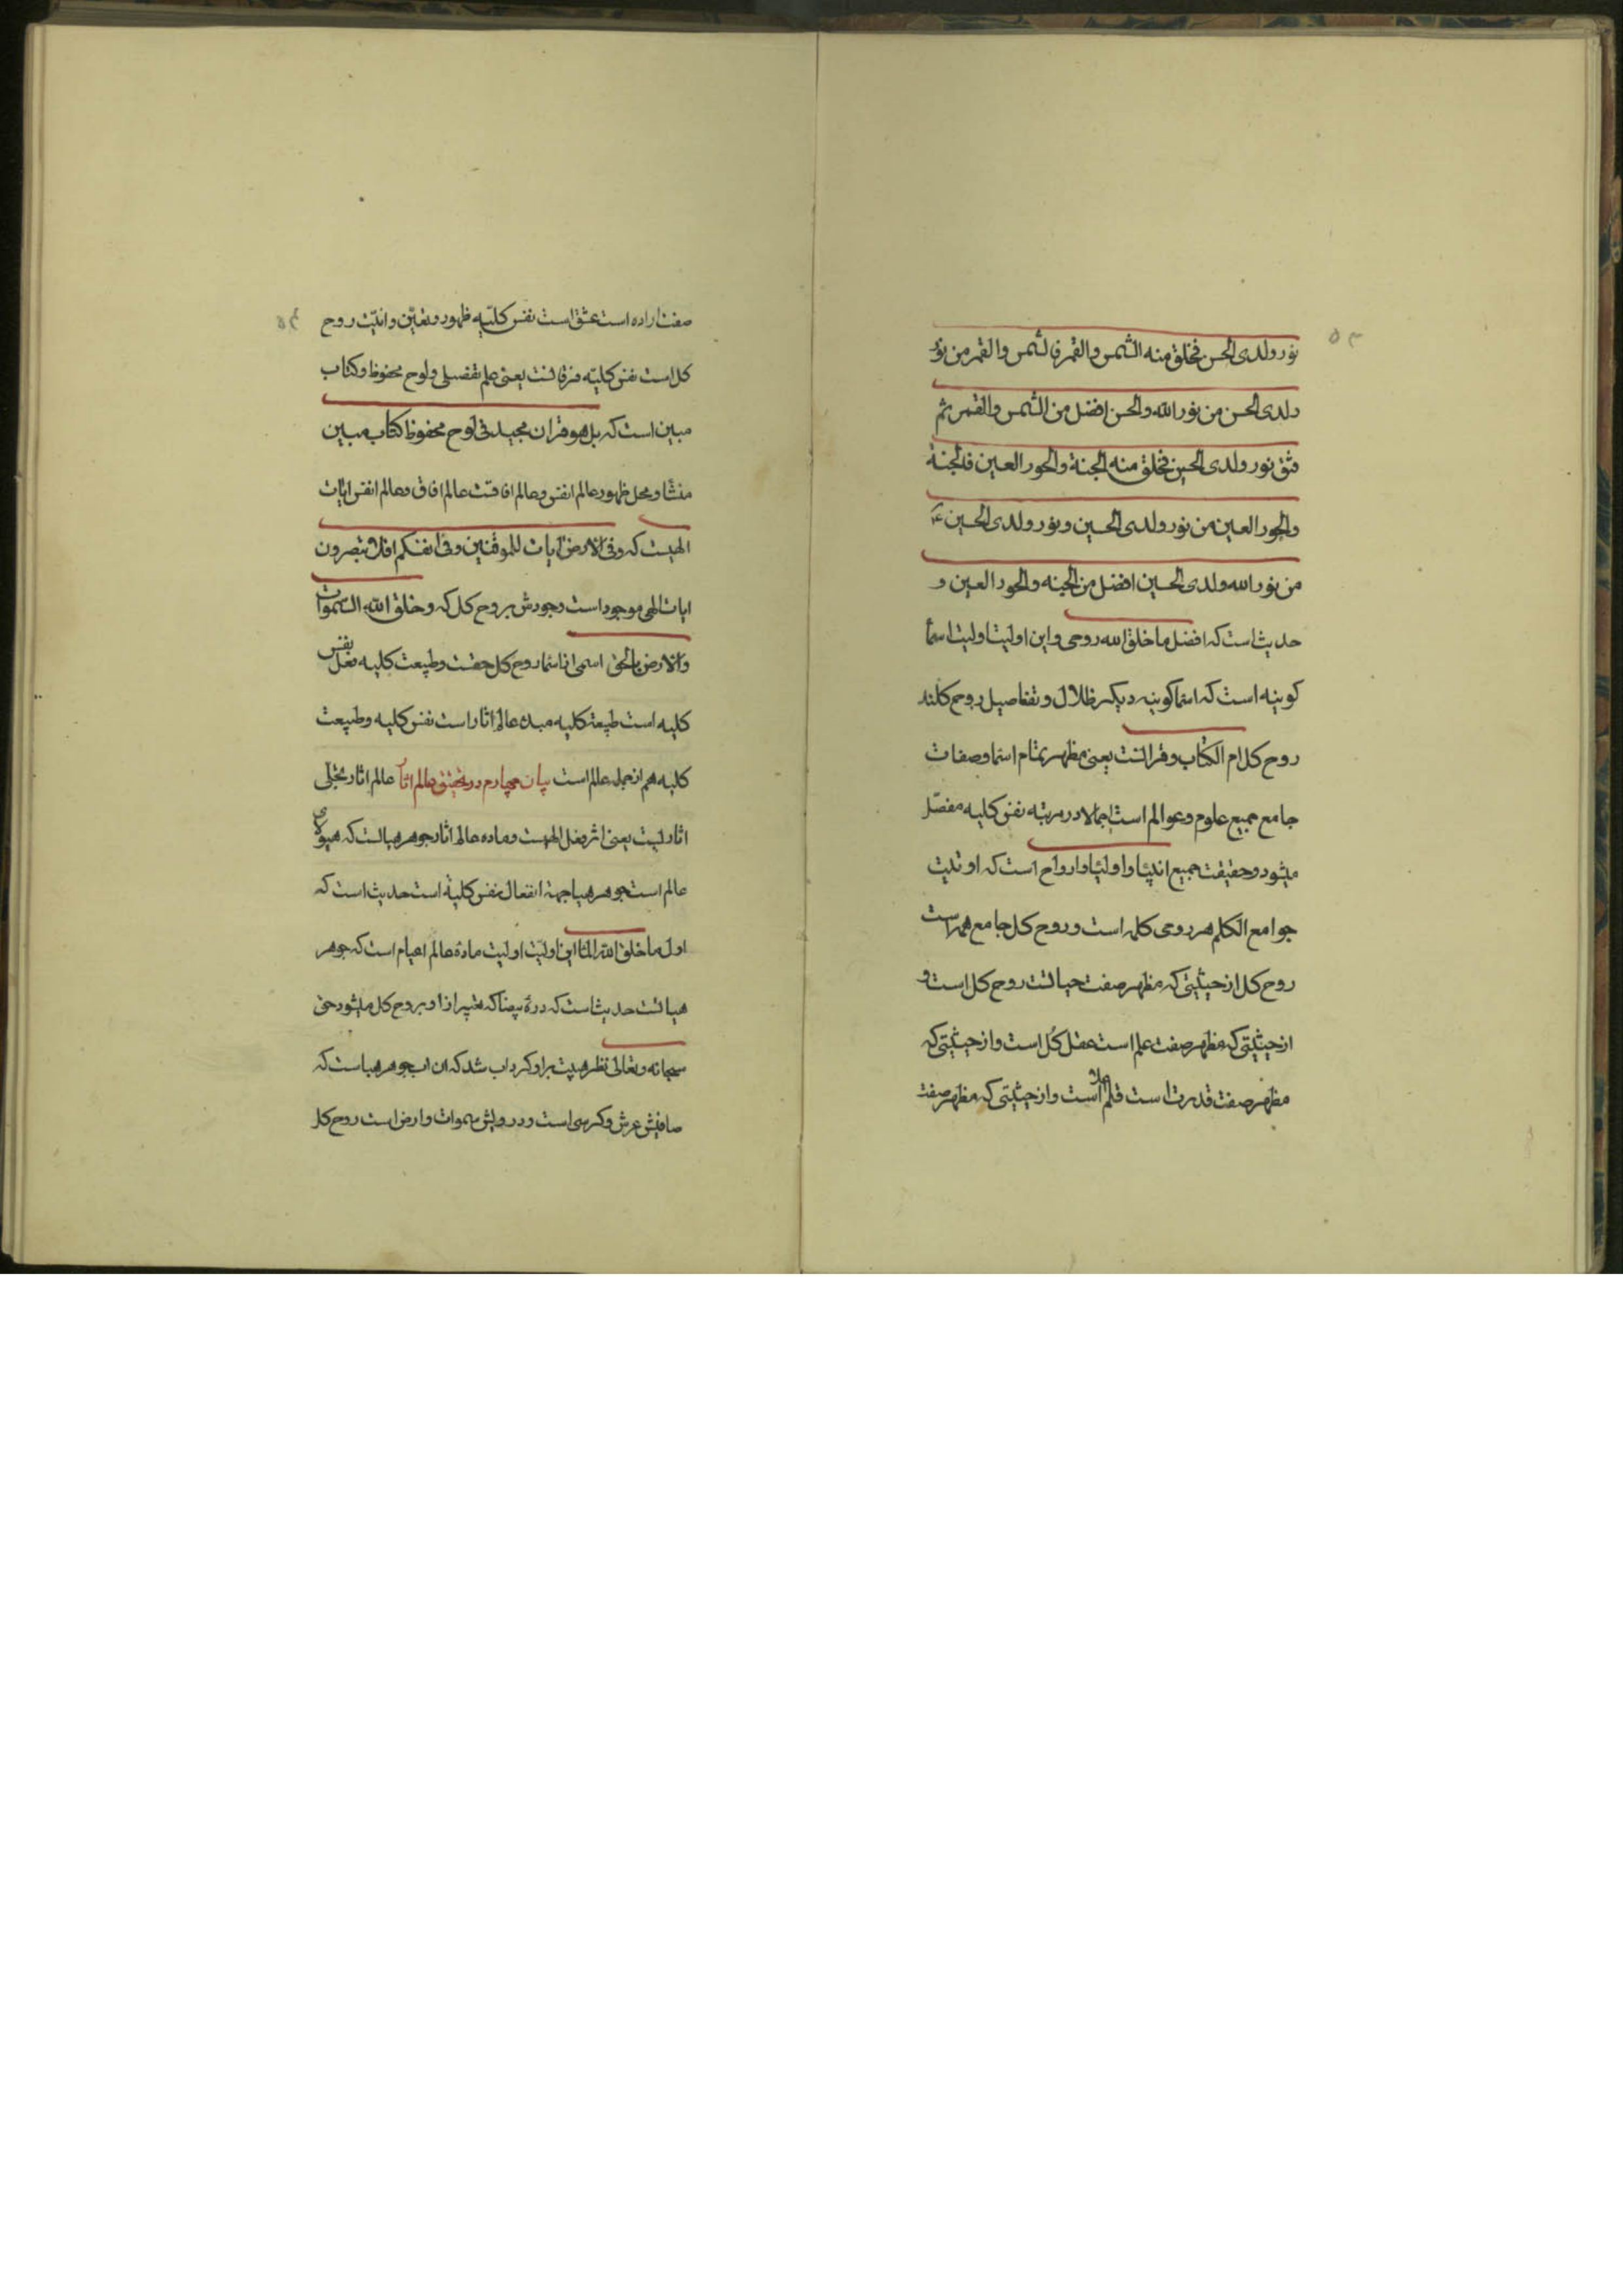 ۵۳
نور ولدی الحسن فخلق منه الشمس والقمر فالشمس والقمر من نور
ولدی الحسن من نور الله والحسن افضل من الشمس والقمر ثم
فتق نور ولدی الحسین فخلق منه الجنة والحور العین فالجنة
والحور العین من نور ولدی الحسین ونور ولدی الحسین
من نور الله ولدی الحسین افضل من الجنه والحور العین و
حدیث است که افضل ما خلق الله روحی و این اولیت اولیت اسما
کونیه است که اسما کونیه دیکر ظلال و تفاصیل روح کلند
روح کل ام الکتاب و قرانست یعنی مظهر تمام اسما و صفات
جامع جمیع علوم و عوالم است اجمالا در مرتبه نفس کلیه مفصّل
میشود و حقیقت جمیع انبیا و اولیا و ارواح است که اوتیت
جوامع الکلم هر روحی کلمه است و روح کل جامع همه است
روح کل از حیثیتی که مظهر صفت حیاتست روح کل است و
از حیثیتی که مظهر صفت علم است عقل کل است و از حیثیتی که
مظهر صفت قدرت است قلم اعلا است و از حیثیتی که مظهر صفت
صفت اراده است عشق است نفس کلیّه ظهور و تعیّن و انیّت روح
کل است نفس کلیّه فرقانست یعنی علم تفصیلی و لوح محفوظ و کتاب
مبین است که بل هو قران مجید فی لوح محفوظ کتاب مبین
منشا و محل ظهور عالم انفس و عالم افاقست عالم افاق و عالم انفس ایات
الهیست که وفی الارض ایات للموقنین وفی انفسکم افلا تبصرون
ایات الهی موجود است وجودش بروح کل که وخلق الله السموات
والارض بالحق اسمی از اسما روح کل حقست و طبیعت کلیه فعل نفس
کلیه است طبیعة کلیه مبدء عالم اثار است نفس کلیه و طبیعت
کلیه هم از جمله عالم است بیان چهارم در تحقیق عالم اثار عالم اثار تجلی
اثاریست یعنی اثر فعل الهیست و ماده عالم اثار جوهر هباست که هیولای
عالم است جوهر هبا جهة انفعال نفس کلیه است حدیث است که
اول ما خلق الله الما این اولیت اولیت مادهٔ عالم اجسام است که جوهر
هباست حدیث است که درهٔ بیضا که تعبیر ازاو بروح کل میشود حق
سبحانه وتعالی نظر هیبت براو کرد اب شد که ان اب جوهر هباست که
صافیش عرش و کرسی است و دردیش سموات و ارض است روح کل